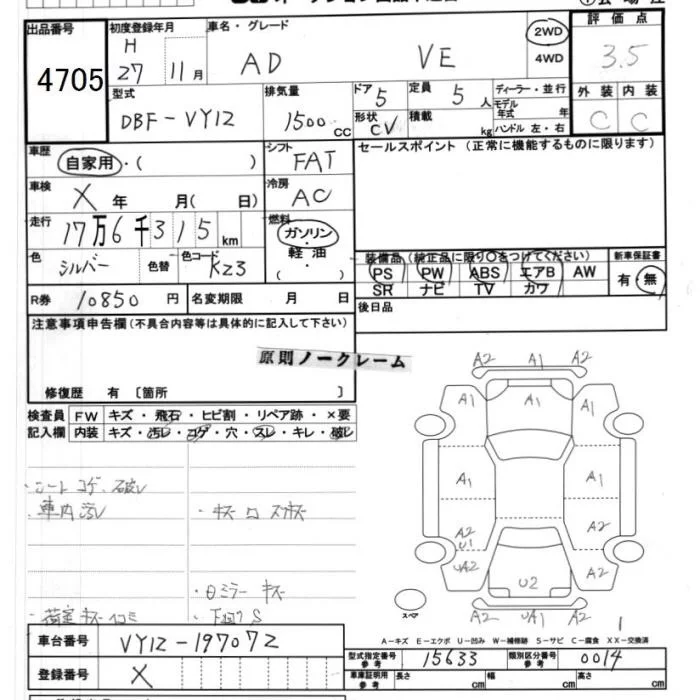 出品番号
4705
初度登録年月
H
27 11月
車名・グレード
AD VE
2WD
4WD
評価点
3.5
型式
DBF-VY12
排気量
1500 CC
ドア 5
形状 CV
定員 5 人
積載 kg
ディーラー・並行
モデル年式 年
ハンドル 左・右
外装 内装
C C
車歴
自家用・( )
シフト
FAT
セールスポイント (正常に機能するものに限ります)
車検
X 年 月(日)
冷房
AC
走行
17万6千315 km
燃料
ガソリン・
軽油
( ・ )
色
シルバー
色替
色コード
KZ3
装備品(純正品に限り○をつけてください)
PS PW ABS エアB AW
SR ナビ TV カワ
新車保証書
有・無
R券 10850 円
名変期限 月 日
後日品
注意事項申告欄(不具合内容等は具体的に記入して下さい)
原則ノークレーム
修復歴 有 〔箇所 〕
検査員
記入欄
FW キズ・飛石・ヒビ割・リペア跡・×要
内装 キズ・汚レ・コゲ・穴・スレ・キレ・破レ
・シート コゲ、破レ
・車内汚レ
・キズ
キズ
・荷室キズ
・下回りS
A2 A1 A2
A1 A1 A1
A1 A1
A2 U1 A2
UA2 U2 A2
A2 UA1 A2
スペア
1
A-キズ E-エクボ U-凹み W-補修跡 S-サビ C-腐食 XX-交換済
車台番号 VY12-197072
登録番号 X
型式指定番号
参考
15633
類別区分番号
参考
0014
車庫証明用
参考
長さ cm
幅 cm
高さ cm